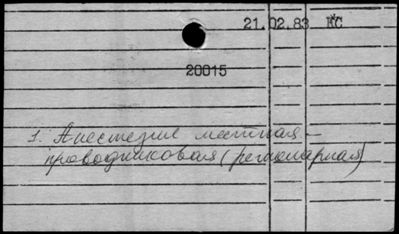 21.02.83 КС
20015
1. Анестезия местная –
проводниковая (регионарная)